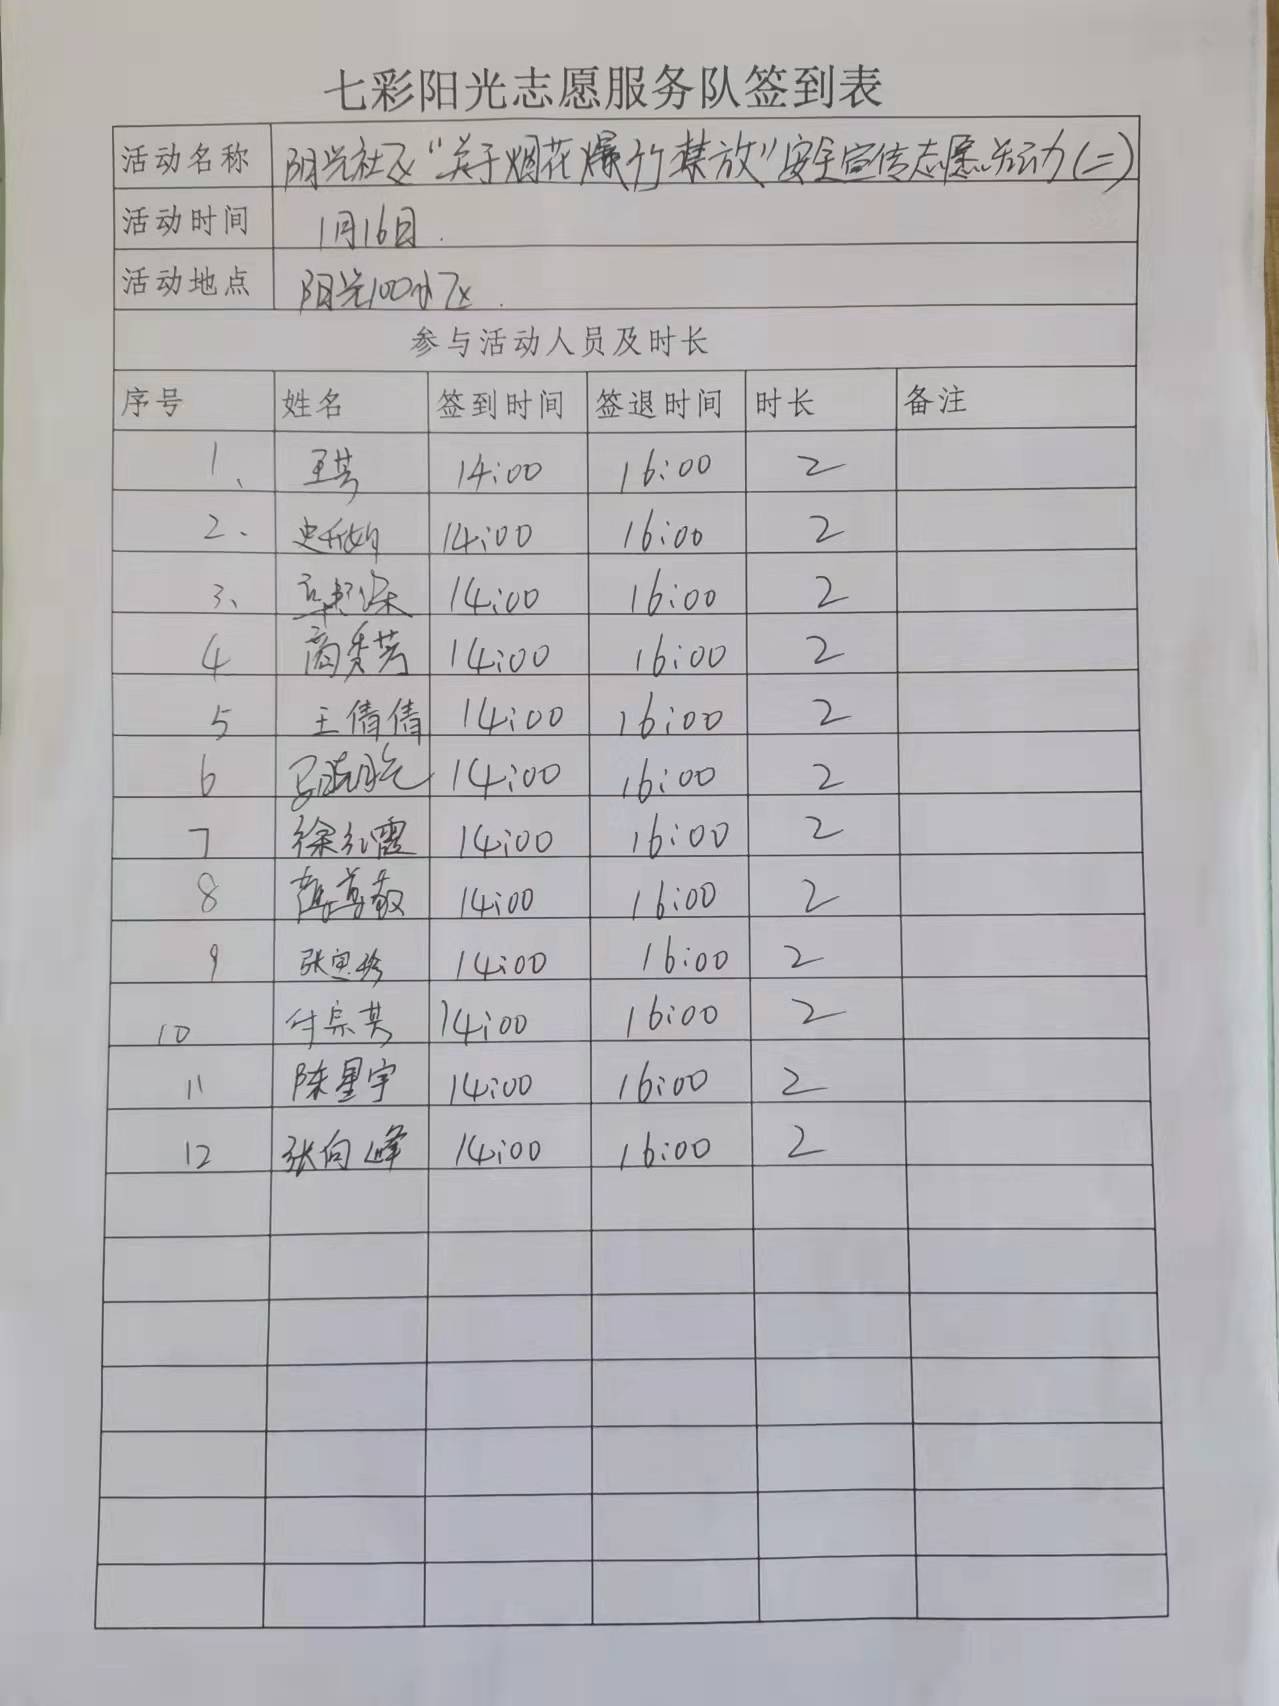 七彩阳光志愿服务队签到表
活动名称 阳光社区“关于烟花爆竹禁放”安全宣传志愿活动(二)
活动时间 1月16日.
活动地点 阳光100小区.
参与活动人员及时长
序号 姓名 签到时间 签退时间 时长 备注
1、 王芸 14:00 16:00 2
2、 14:00 16:00 2
3、 14:00 16:00 2
4 商秀芳 14:00 16:00 2
5 王倩倩 14:00 16:00 2
6 14:00 16:00 2
7 徐红霞 14:00 16:00 2
8 14:00 16:00 2
9 14:00 16:00 2
10 付宗英 14:00 16:00 2
11 陈星宇 14:00 16:00 2
12 张向峰 14:00 16:00 2